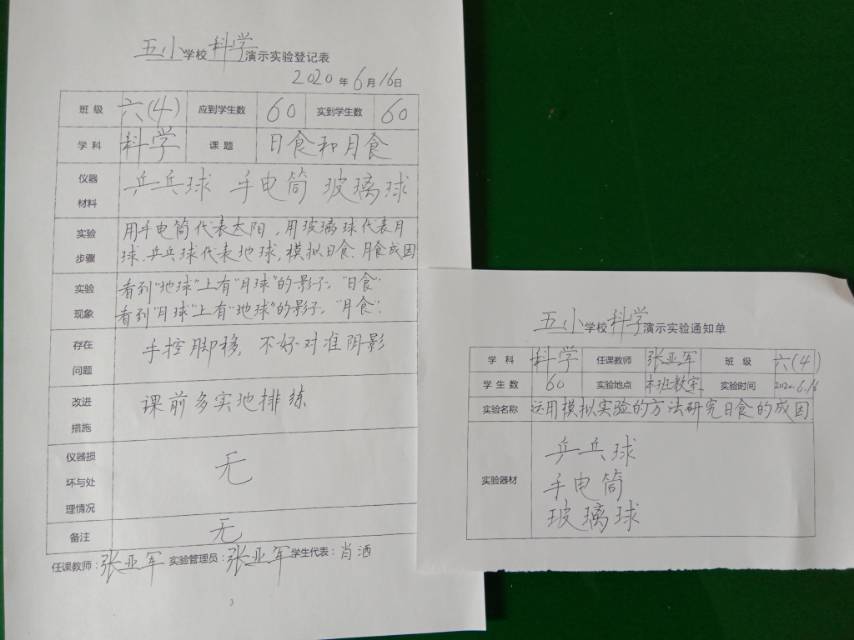 五小学校科学演示实验登记表
2020年6月16日
班级 六(4) 应到学生数 60 实到学生数 60
学科 科学 课题 日食和月食
仪器材料 乒乓球 手电筒 玻璃球
实验步骤 用手电筒代表太阳,用玻璃球代表月
球.乒乓球代表地球,模拟日食.月食成因
实验现象 看到"地球"上有"月球"的影子,"日食"
看到"月球"上有"地球"的影子,"月食".
存在问题 手控脚移,不好对准阴影
改进措施 课前多实地排练
仪器损坏与处理情况 无
备注 无
任课教师:张亚军 实验管理员:张亚军 学生代表:肖洒
五小学校科学演示实验通知单
学科 科学 任课教师 张亚军 班级 六(4)
学生数 60 实验地点 本班教室 实验时间 2020.6.16
实验名称 运用模拟实验的方法研究日食的成因
实验器材 乒乓球
手电筒
玻璃球